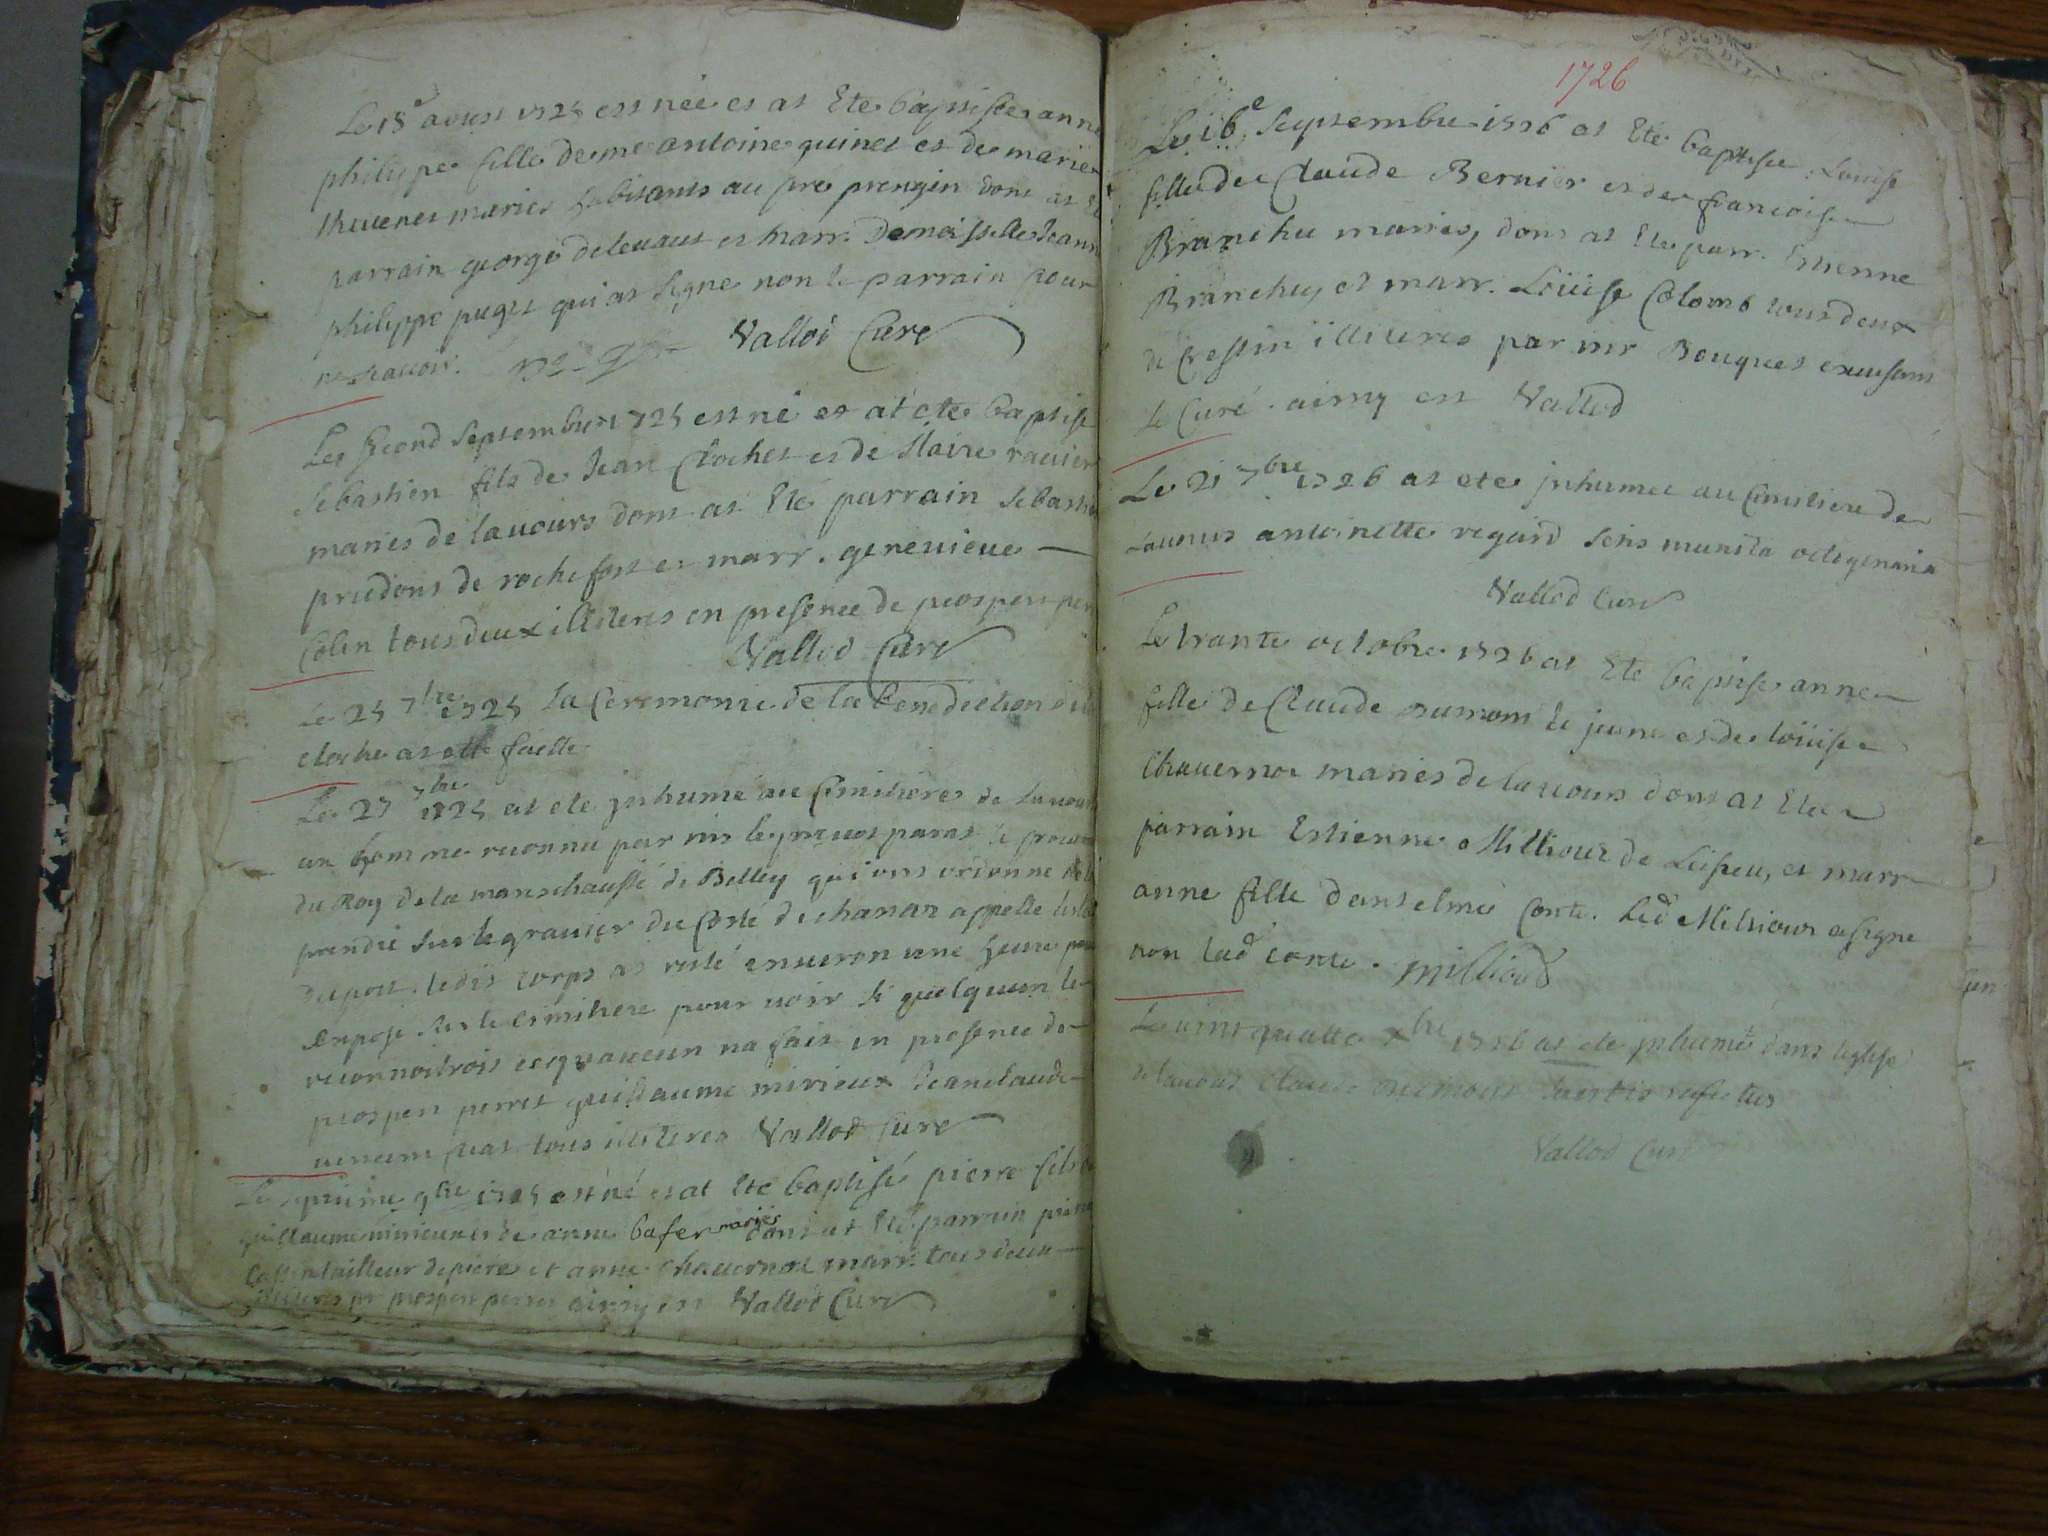 Le 18e aoust 1725 est née et at Ete baptisée anne
philippe fille de me antoine quinet et de marie
thevenet mariés habitants au pre prengin dont at Et
parrain george delevaus et marr. Demoiselle Jeann
philippe puget qui at signe non le parrain pour
ne scavoir. Vallod Cure
Le second septembre 1725 est né et at ete baptise
sebastien fils de Jean Clochet et de Claire ravier
maries de lavours dont at Eté parrain sebastie
prudont de rochefort et marr. genevieve
Colin tous deux illiteres en presence de prosper per
Vallod Curé
Le 25 7bre 1725 la Ceremonie de la benediction de la
cloche at ete faitte
Le 27 7bre 1725 at ete inhumé au Cimitiere de lavou
un homme reconnu par mrs le prevost paras le procu
du Roy de la mareschaussé de Belley qui ont ordonne de le
prendre sur le gravier du Costé de chanaz appelle
du port. ledit corps at resté environ une heure
Expose sur le cimitiere pour voir si quelquun le
reconnoitrois cequaucun na fait en presence de
prosper perret guillaume mirieux Jeanclaude
tous illiteres Vallod Cure
Le 9bre 1725 est né et at Ete baptisé pierre fils de
guillaume mirieux et de anne bafer mariés dont at Eté parrain pierre
tailleur de piere et anne chavernoz marr. tous deux
illiteres pr prosper perret ainsy est Vallod Cure
1726
Le 16e Septembre 1726 at Ete baptisée Louise
fille de Claude Bernier et de francoise
Branchu mariés, dont at Ete parr. Estienne
Branchu, et marr. Loüise Colomb tous deux
de Cressin illiteres par mr Bouquet excusant
le Curé. ainsy est Vallod
Le 21 7bre 1726 at ete inhumée au Cimitiere de
Lavours antoinette regard sctis munita octogenaria
Vallod Curé
Le trante octobre 1726 at Ete baptise anne
fille de Claude dumont le jeune et de loüise
Chavernoz maries de lavours dont at Ete
parrain Estienne Millioud de Leisseu, et marr
anne fille d'anselme Conte. Led Millioud a signe
non lad conte. Millioud
Le vint quatre xbre 1726 at ete inhumé dans leglise
de lavours Claude dumont refectus
Vallod Curé